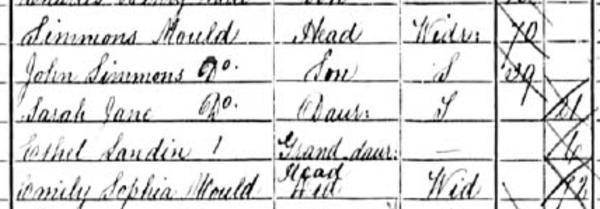 Simmons Mould Head Widr: 70
John Simmons Do. Son S 39
Sarah Jane Do. Daur: S 21
Ethel Landin Grand daur: — 6
Emily Sophia Mould Head Wid